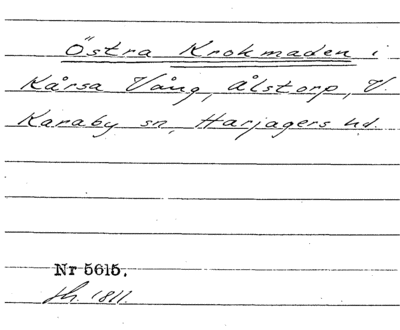 Östra Krokmaden i
Kårsa Vång, Ålstorp, V.
Karaby sn, Harjagers hd.
Nr 5615.
1811.